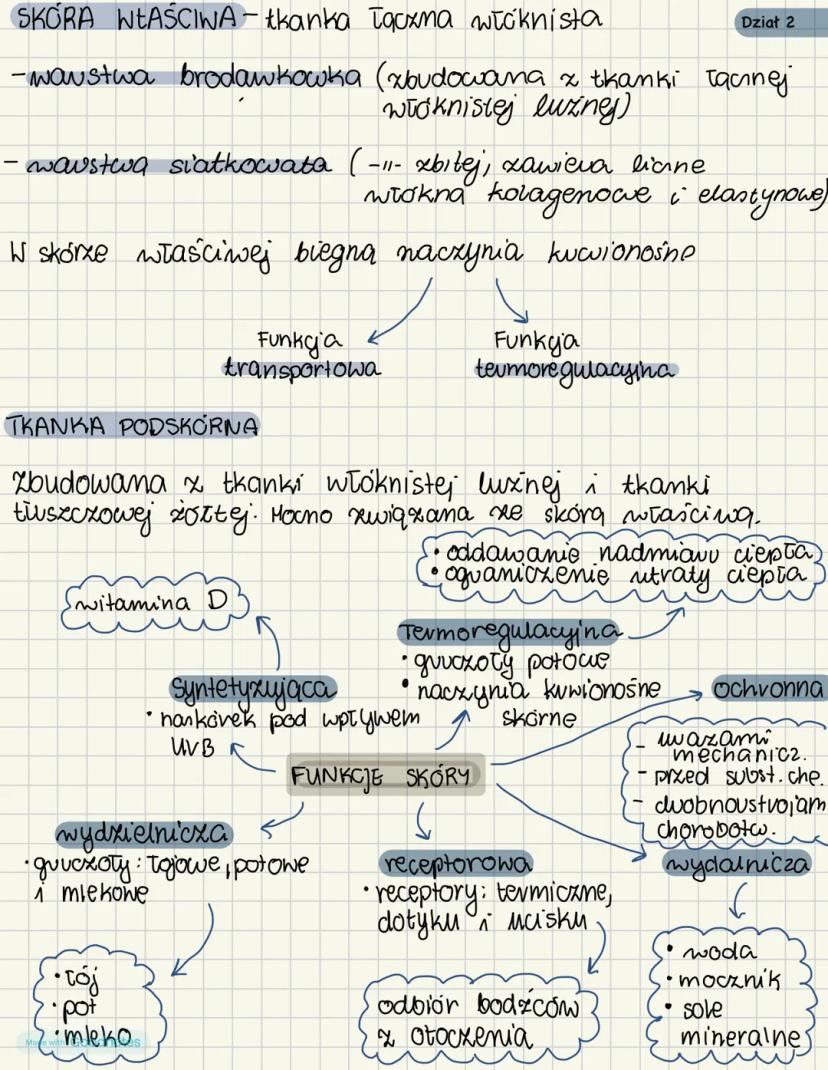 SKÓRA WŁAŚCIWA - tkanka łączna włóknista
Dział 2
- warstwa brodawkowka (zbudowana z tkanki łącnej
włóknistej luźnej)
- warstwa siatkowata ( -॥- zbitej, zawiera liczne
włókna kolagenowe i elastynowe)
W skórze właściwej biegną naczynia krwionośne
Funkcja
transportowa
Funkcja
termoregulacyjna
TKANKA PODSKÓRNA
Zbudowana z tkanki włóknistej luźnej i tkanki
tłuszczowej żółtej. Mocno związana ze skórą właściwą.
• oddawanie nadmiaru ciepła
• ograniczenie utraty ciepła
witamina D
Termoregulacyjna
• gruczoły potowe
• naczynia krwionośne
skórne
Syntetyzująca
• naskórek pod wpływem
UVB
ochronna
- urazami
mechanicz.
- przed subst. che.
- drobnoustrojam
chorobotw.
FUNKCJE SKÓRY
wydzielnicza
• gruczoły: łojowe, potowe
i mlekowe
receptorowa
• receptory: termiczne,
dotyku i ucisku
wydalnicza
• łój
• pot
• mleko
odbiór bodźców
z otoczenia
• woda
• mocznik
• sole
mineralne
Made with Goodnotes